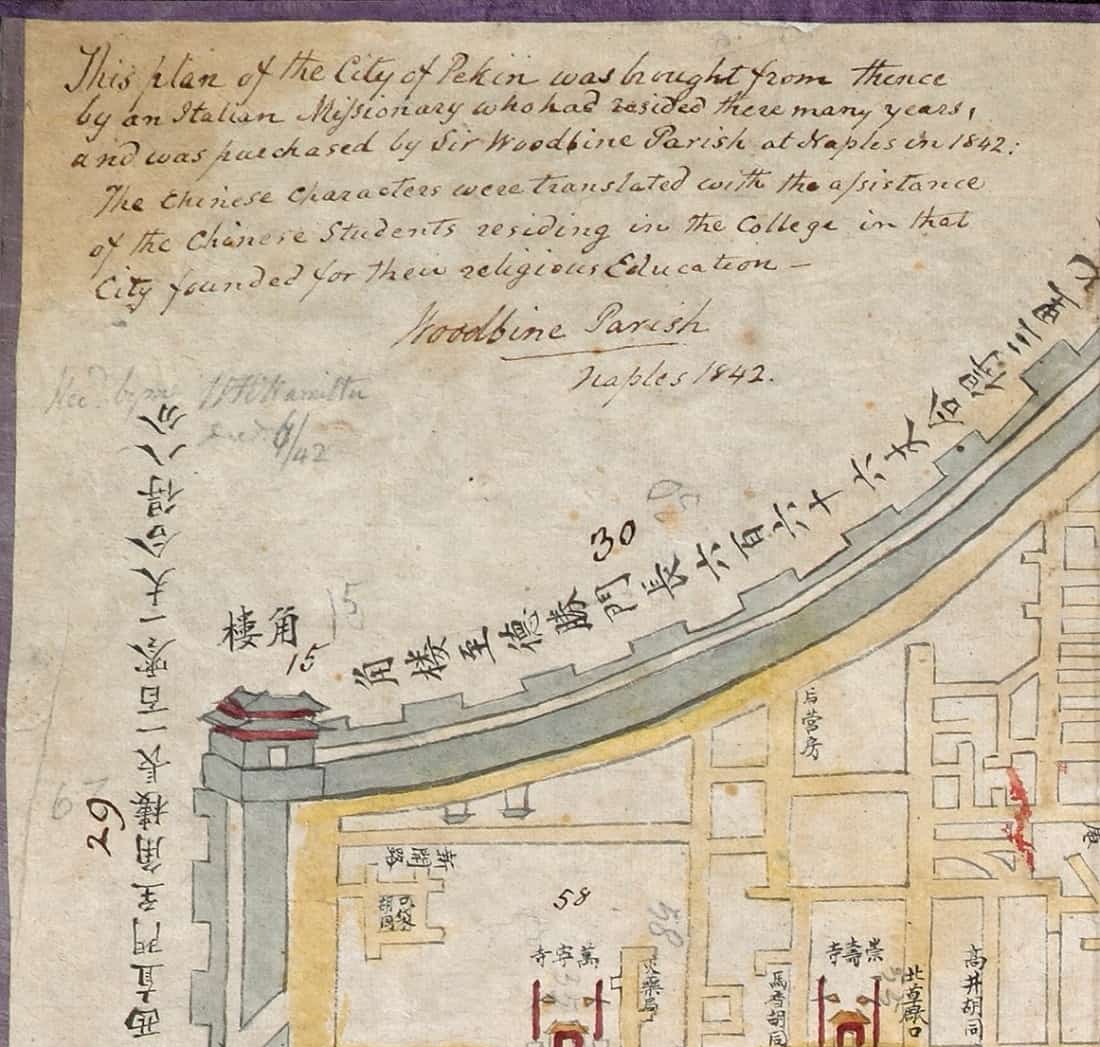 This plan of the City of Pekin was brought from thence
by an Italian Missionary who had resided there many years,
and was purchased by Sir Woodbine Parish at Naples in 1842:
The Chinese Characters were translated with the assistance
of the Chinese Students residing in the College in that
City founded for their religious Education —
Woodbine Parish
Naples 1842.
Hamilton
/42
30
角樓至德勝門長六百六十六丈合得三里
樓角
15
15
29
西直門至角樓長一百零一丈合得八分
后营房
新開路
口袋胡同
58
58
寺寧萬
火藥局
馬香胡同
寺壽崇
北草廠口
高井胡同